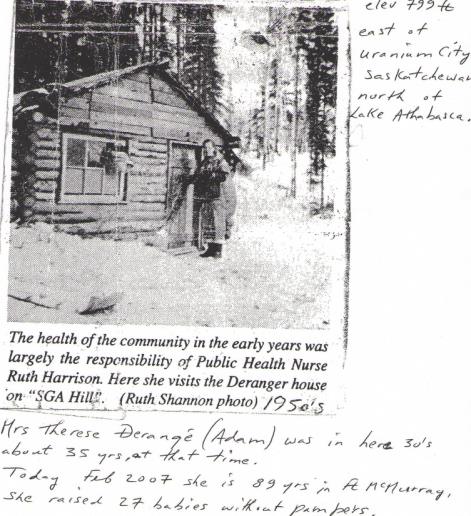 elev 799 ft
east of
Uranium City
Saskatchewan
north of
Lake Athabasca.
The health of the community in the early years was
largely the responsibility of Public Health Nurse
Ruth Harrison. Here she visits the Deranger house
on "SGA Hill". (Ruth Shannon photo) 1950's
Mrs Therese Derangé (Adam) was in here 30's
about 35 yrs, at that time.
Today Feb 2007 she is 89 yrs in Ft McMurray,
she raised 27 babies without pampers.